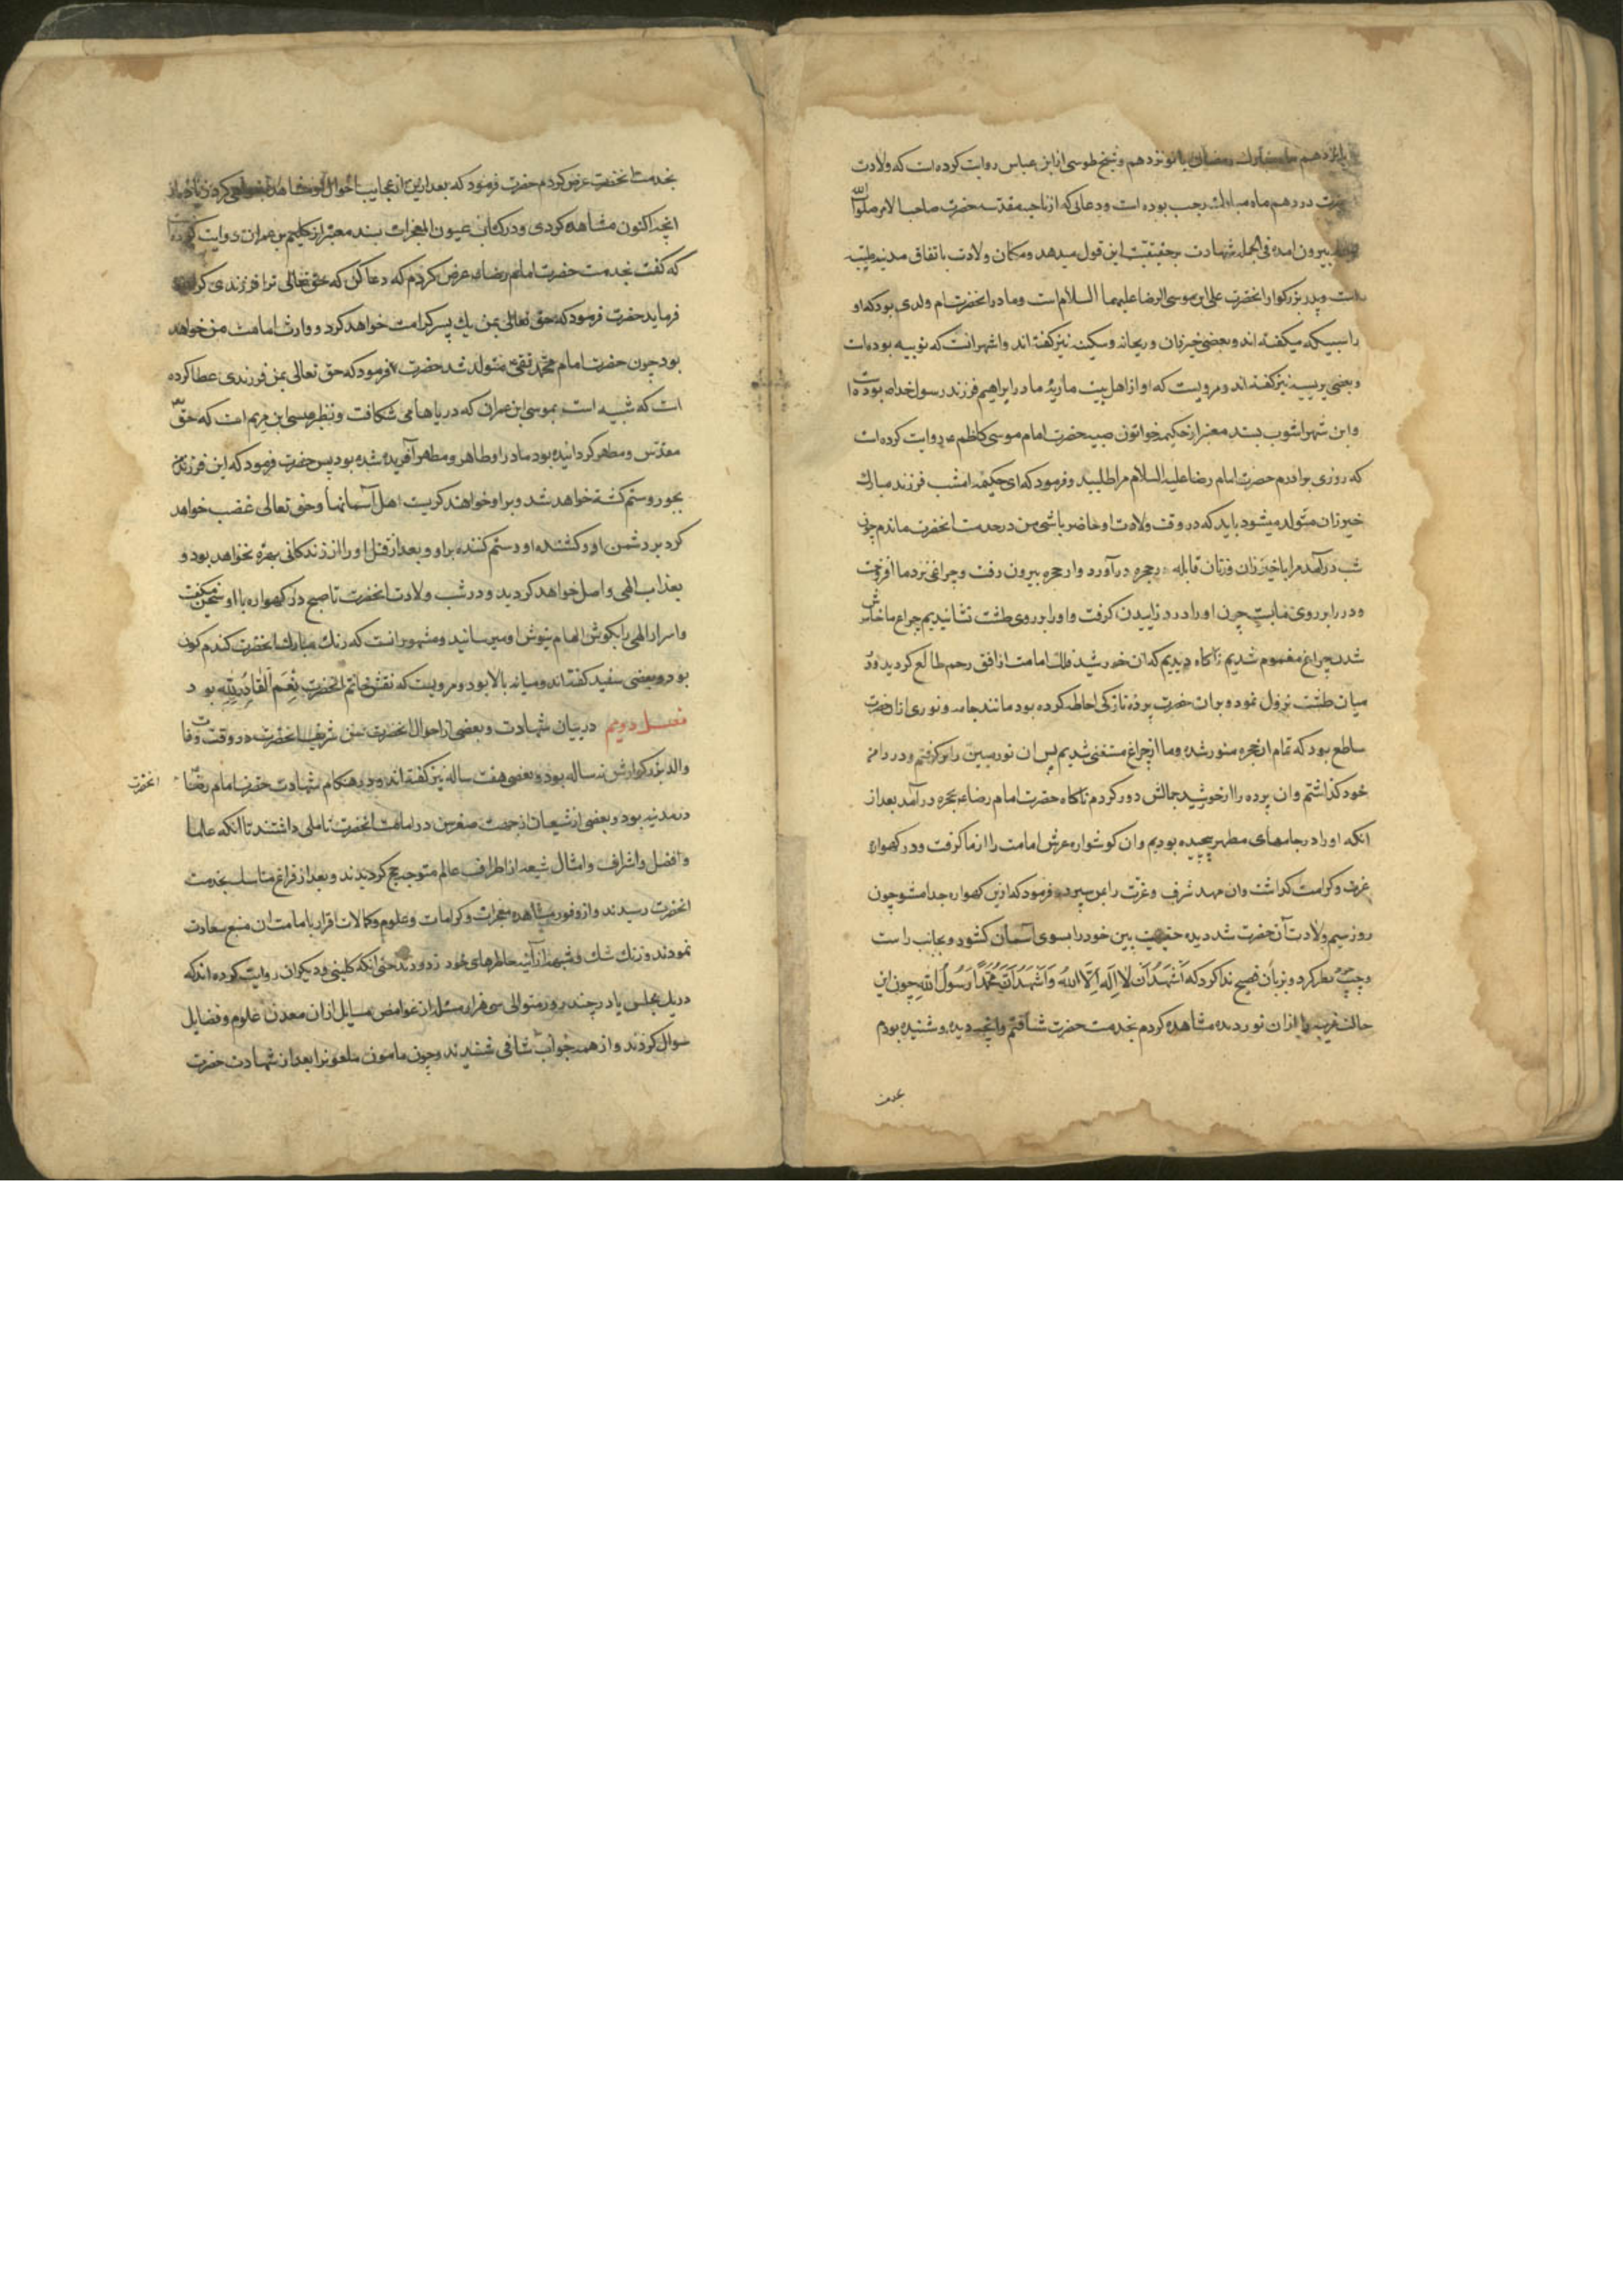 پانزدهم ماه مبارك رمضان یا نوزدهم و شیخ طوسی از ابن عباس روایت کرده است که ولادت
حضرت در دهم ماه مبارك رجب بوده است ودعائی که از ناحیه مقدسه حضرت صاحب الامر صلوات الله
بیرون امده فی الجمله شهادت بر حقیقت این قول میدهد ومکان ولادت باتفاق مدنیه طیبه
است وپدر بزرکوار انحضرت علی ابن موسی الرضا علیهما السلام است ومادر انحضرت ام ولدی بود که او
را سبیکه میکفته اند وبعضی خیزران وریحانه وسکینه نیز کفته اند واشهر انست که نوبیه بوده است
وبعضی مریسیه نیز کفته اند ومرویست که او از اهل بیت ماریۀ مادر ابراهیم فرزند رسول خدا بوده است
وابن شهراشوب بسند معتبر از حکیمه خواتون صبیه حضرت امام موسی کاظم ع روایت کرده است
که روزی برادرم حضرت امام رضا علیه السلام مرا طلبید وفرمود که ای حکیمه امشب فرزند مبارك
خیزران متولد میشود باید که در وقت ولادت او حاضر باشی من در خدمت انحضرت ماندم چون
شب درآمد مرا با خیزران وزنان قابله در حجره درآورد واز حجره بیرون رفت وچراغی نزد ما افروخت
ودر را بر روی ما بست چون او را درد زاییدن کرفت واو را بر روی طشت نشانیدیم چراغ ما خاموش
شد بچراغ مغموم شدیم ناکاه دیدیم که ان خورشید فلك امامت از افق رحم طالع کردید ودر
میان طشت نزول نمود وبر ان حضرت پردۀ نازکی احاطه کرده بود مانند جامه ونوری از ان حضرت
ساطع بود که تمام ان حجره منور شد وما از چراغ مستغنی شدیم پس ان نور مبین را بر کرفتم ودر دامن
خود کذاشتم وان پرده را از خورشید جمالش دور کردم ناکاه حضرت امام رضا ع بحجره درآمد بعد از
انکه او را در جامهای مطهر پیچیده بودیم وان کوشواره عرش امامت را از ما کرفت ودر کهواره
عزت وکرامت کذاشت وان مهد شرف وعزت را بمن سپرد وفرمود که ازین کهواره جدا مشو چون
روز سیم ولادت آن حضرت شد دیده حقیقت بین خود را بسوی آسمان کشود وبجانب راست
وچپ نظر کرد وبزبان فصیح ندا کرد که اَشْهَدُ اَنْ لا اِلٰهَ اِلَّا اللهُ وَاَشْهَدُ اَنَّ مُحَمَّدًا رَسُولُ اللهِ چون این
حالت غریب را از ان نور دیده مشاهده کردم بخدمت حضرت شتافتم وانچه دیده وشنیده بودم
بخدمت
بخدمت انحضرت عرض کردم حضرت فرمود که بعد ازین از عجایب احوال او مشاهده خواهی کرد زیاده از
انچه اکنون مشاهده کردی ودر کتاب عیون المعجزات بسند معتبر از کلیم بن عمران روایت کرده
که کفت بخدمت حضرت امام رضا ع عرض کردم که دعا کن که حق تعالی ترا فرزندی کرامت
فرماید حضرت فرمود که حق تعالی بمن یك پسر کرامت خواهد کرد ووارث امامت من خواهد
بود چون حضرت امام محمد تقی ع متولد شد حضرت فرمود که حق تعالی بمن فرزندی عطا کرده
است که شبیه است بموسی ابن عمران که دریاها می شکافت ونظیر عیسی ابن مریم است که حق
مقدس ومطهر کردانیده بود مادر او طاهر ومطهر آفریده شده بود پس حضرت فرمود که این فرزند من
بجور وستم کشته خواهد شد وبر او خواهند کریست اهل آسمانها وحق تعالی غضب خواهد
کرد بر دشمن او وکشنده او وستم کننده بر او وبعد از قتل او از زندکانی بهره نخواهد بود و
بعذاب الهی واصل خواهد کردید ودر شب ولادت انحضرت تا صبح در کهواره با او سخن میکفت
واسرار الهی را بکوش الهام نیوش او میرسانید ومشهور انست که رنك مبارك انحضرت کندم کون
بود وبعضی سفید کفته اند ومیانه بالا بود ومرویست که نقش خاتم انحضرت نِعْمَ القٰادِرُ اللهِ بود
فصل دویم در بیان شهادت وبعضی از احوال انحضرت سن شریف انحضرت در وقت وفات
والد بزرکوارش نه ساله بود وبعضی هفت ساله نیز کفته اند ودر هنکام شهادت حضرت امام رضا ع انحضرت
در مدنیه بود وبعضی از شیعیان از جهت صغر سن در امامت انحضرت تاملی داشتند تا انکه علما
وافضل واشراف وامثال شیعه از اطراف عالم متوجه حج کردیدند وبعد از فراغ مناسك بخدمت
انحضرت رسیدند واز وفور مشاهده معجزات وکرامات وعلوم وکمالات اقرار بامامت ان منبع سعادت
نمودند وزنك شك وشبهه از آئینه خاطرهای خود زدودند حتی انکه کلینی ودیکران روایت کرده اند که
در یك مجلس یا در چند روز متوالی سی هزار مسئله از غوامض مسایل از ان معدن علوم وفضایل
سوال کردند واز همه جواب شافی شنیدند وچون مامون ملعونرا بعد از شهادت حضرت